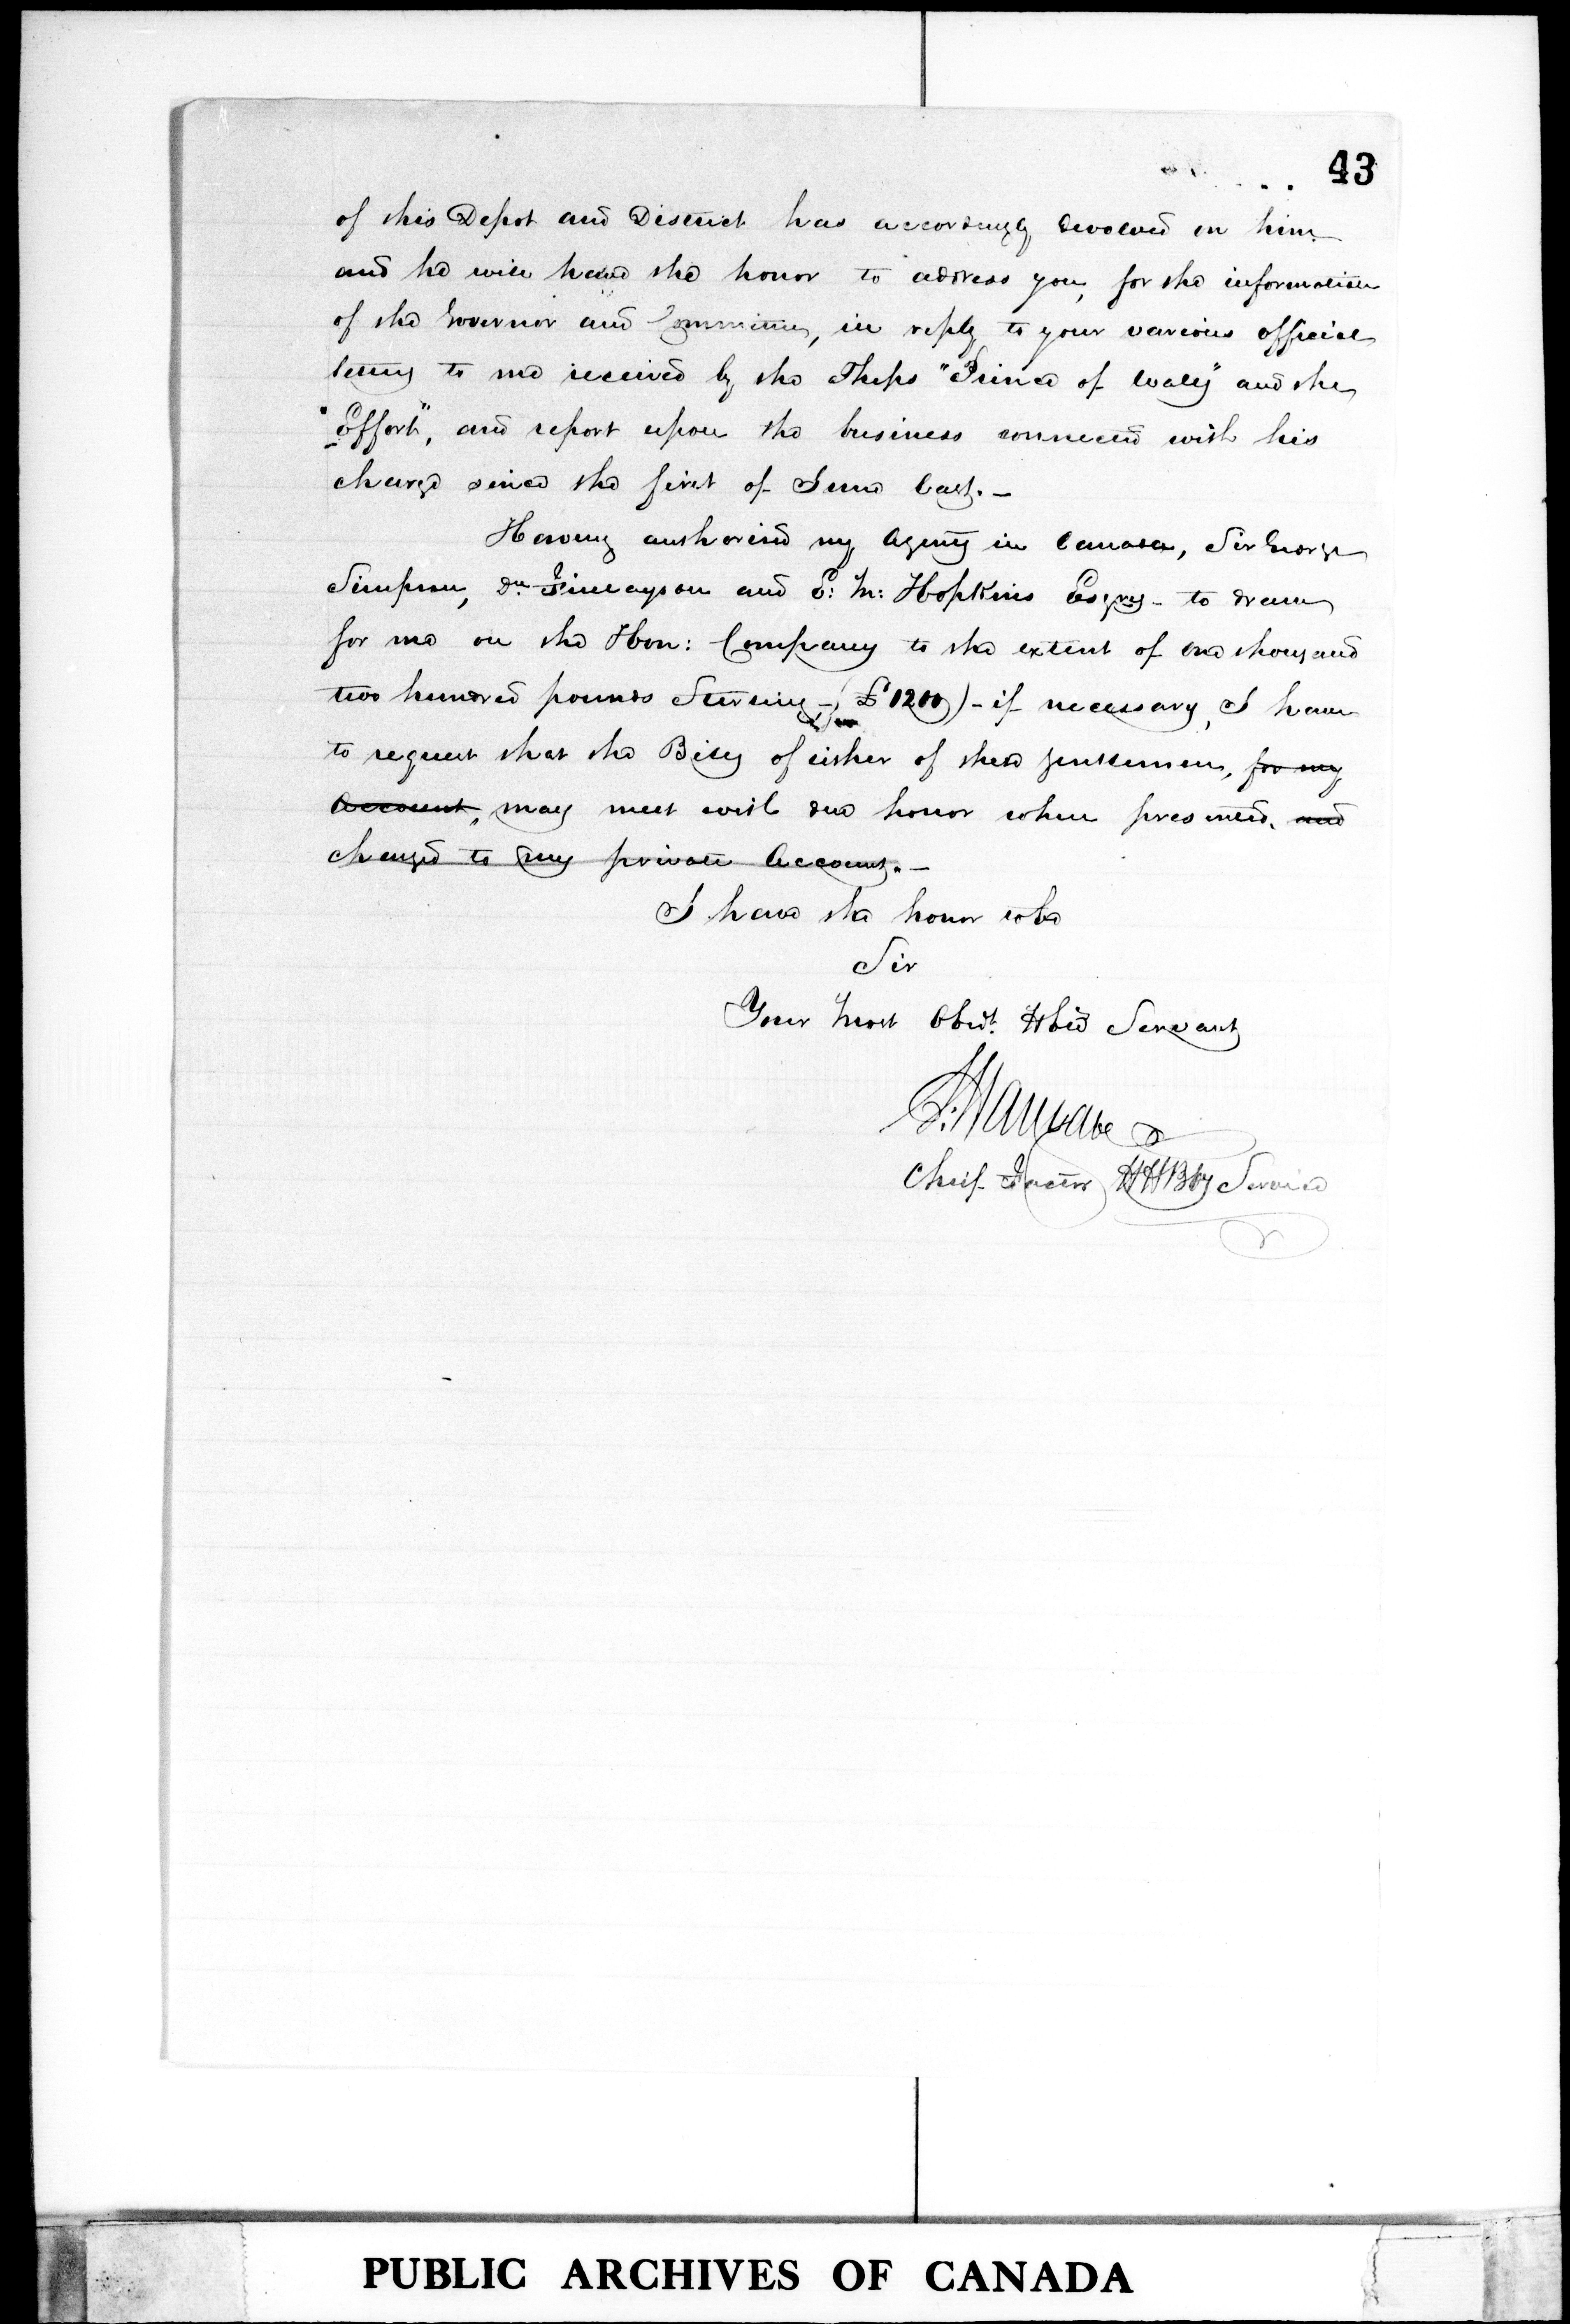 43
of this Depot and District has accordingly devolved on him
and he will have the honor to address you, for the information
of the Governor and Committee, in reply to your various official
letters to me received by the Ships "Prince of Wales" and the
"Effort", and report upon the business connected with his
charge since the first of June last. -
Having authorised my Agents in Canada, Sir George
Simpson, Dn. Finlayson and E: M: Hopkins Esqrs - to draw
for me on the Hon: Company to the extent of one thousand
two hundred pounds Sterling - (£1200) - if necessary, I have
to request that the Bills of either of these gentlemen, for my
Account, may meet with due honor when presented, and
charged to my private Account. -
I have the honor to be
Sir
Your Most Obedt. Hble Servant
J. Hargrave
Chief Factor HHBCy Service
PUBLIC ARCHIVES OF CANADA